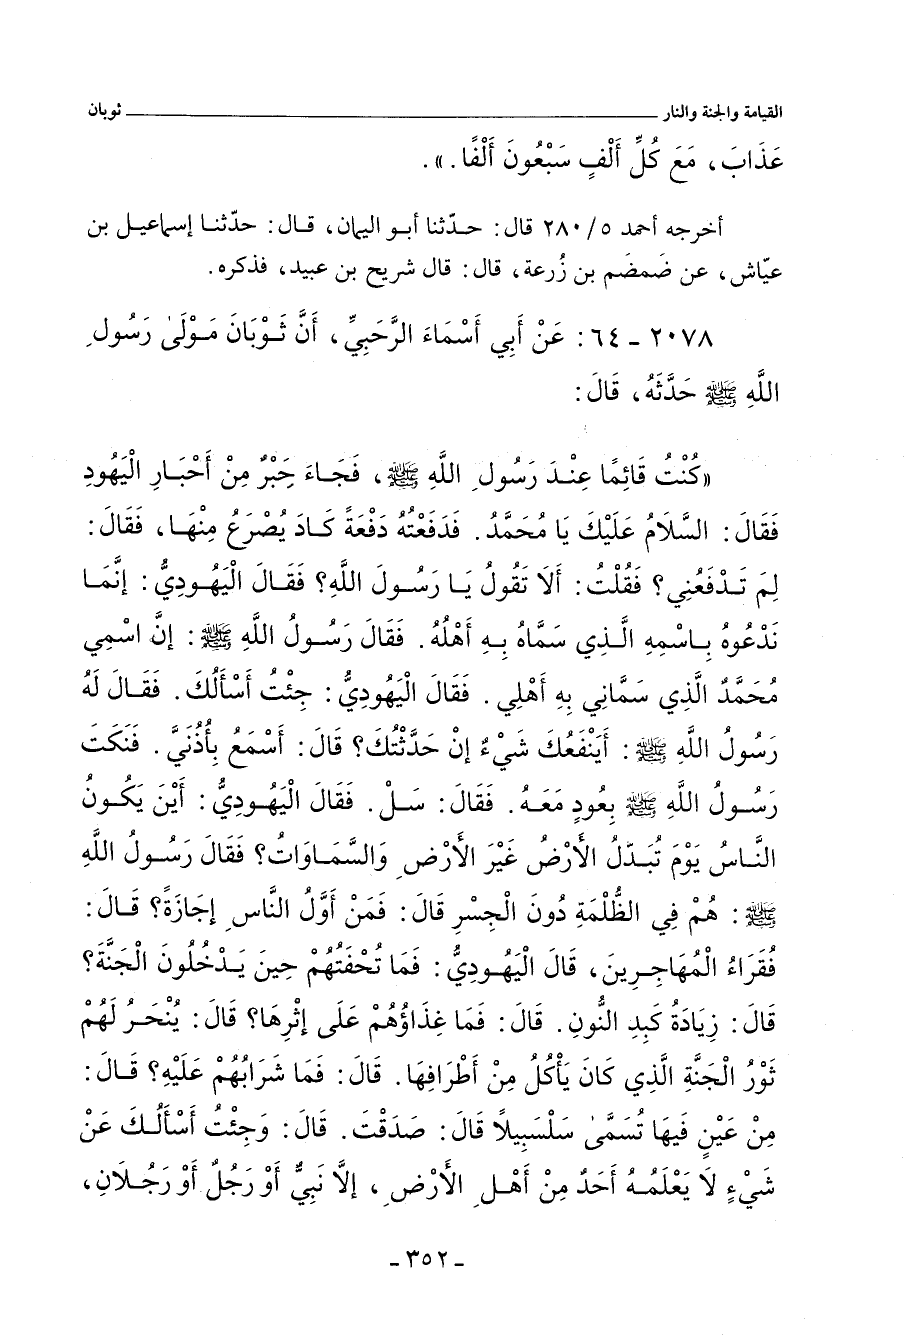 القيامة والجنة والنار ــــــــــــــــــــ ثوبان
عَذَابَ، مَعَ كُلِّ أَلْفٍ سَبْعُونَ أَلْفًا.».
أخرجه أحمد ٢٨٠/٥ قال: حدّثنا أبو اليمان، قال: حدّثنا إسماعيل بن
عيّاش، عن ضَمضَم بن زُرعة، قال: قال شريح بن عبيد، فذكره.
٢٠٧٨ - ٦٤: عَنْ أَبِي أَسْمَاءَ الرَّحَبِيِّ، أَنَّ ثَوْبَانَ مَوْلَىٰ رَسُولِ
اللَّهِ ﷺ حَدَّثَهُ، قَالَ:
«كُنْتُ قَائِمًا عِنْدَ رَسُولِ اللَّهِ ﷺ، فَجَاءَ حَبْرٌ مِنْ أَحْبَارِ الْيَهُودِ
فَقَالَ: السَّلَامُ عَلَيْكَ يَا مُحَمَّدُ. فَدَفَعْتُهُ دَفْعَةً كَادَ يُصْرَعُ مِنْهَا، فَقَالَ:
لِمَ تَدْفَعُنِي؟ فَقُلْتُ: أَلَا تَقُولُ يَا رَسُولَ اللَّهِ؟ فَقَالَ الْيَهُودِيُّ: إِنَّمَا
نَدْعُوهُ بِاسْمِهِ الَّذِي سَمَّاهُ بِهِ أَهْلُهُ. فَقَالَ رَسُولُ اللَّهِ ﷺ: إِنَّ اسْمِي
مُحَمَّدٌ الَّذِي سَمَّانِي بِهِ أَهْلِي. فَقَالَ الْيَهُودِيُّ: جِئْتُ أَسْأَلُكَ. فَقَالَ لَهُ
رَسُولُ اللَّهِ ﷺ: أَيَنْفَعُكَ شَيْءٌ إِنْ حَدَّثْتُكَ؟ قَالَ: أَسْمَعُ بِأُذُنَيَّ. فَنَكَتَ
رَسُولُ اللَّهِ ﷺ بِعُودٍ مَعَهُ. فَقَالَ: سَلْ. فَقَالَ الْيَهُودِيُّ: أَيْنَ يَكُونُ
النَّاسُ يَوْمَ تُبَدَّلُ الْأَرْضُ غَيْرَ الْأَرْضِ وَالسَّمَاوَاتُ؟ فَقَالَ رَسُولُ اللَّهِ
ﷺ: هُمْ فِي الظُّلْمَةِ دُونَ الْجِسْرِ قَالَ: فَمَنْ أَوَّلُ النَّاسِ إِجَازَةً؟ قَالَ:
فُقَرَاءُ الْمُهَاجِرِينَ، قَالَ الْيَهُودِيُّ: فَمَا تُحْفَتُهُمْ حِينَ يَدْخُلُونَ الْجَنَّةَ؟
قَالَ: زِيَادَةُ كَبِدِ النُّونِ. قَالَ: فَمَا غِذَاؤُهُمْ عَلَى إِثْرِهَا؟ قَالَ: يُنْحَرُ لَهُمْ
ثَوْرُ الْجَنَّةِ الَّذِي كَانَ يَأْكُلُ مِنْ أَطْرَافِهَا. قَالَ: فَمَا شَرَابُهُمْ عَلَيْهِ؟ قَالَ:
مِنْ عَيْنٍ فِيهَا تُسَمَّىٰ سَلْسَبِيلاً قَالَ: صَدَقْتَ. قَالَ: وَجِئْتُ أَسْأَلُكَ عَنْ
شَيْءٍ لَا يَعْلَمُهُ أَحَدٌ مِنْ أَهْلِ الْأَرْضِ، إِلَّا نَبِيٌّ أَوْ رَجُلٌ أَوْ رَجُلَانِ،
- ٣٥٢ -